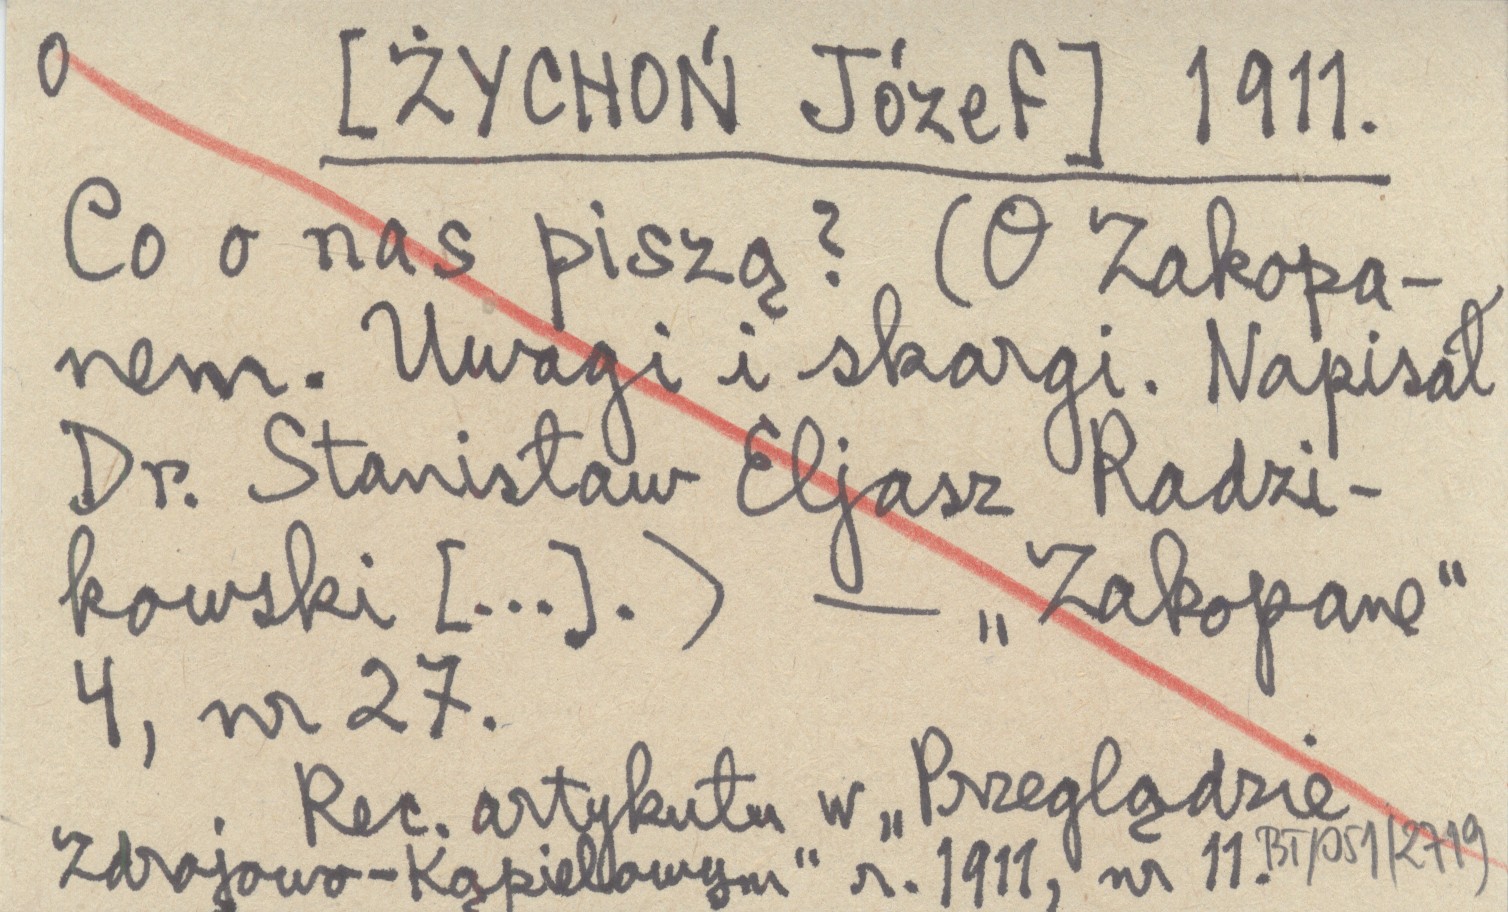 o [ŻYCHOŃ Józef] 1911.
Co o nas piszą? (O Zakopa-
nem. Uwagi i skargi. Napisał
Dr. Stanisław Eljasz Radzi-
kowski [...].) — „Zakopane"
4, nr 27.
Rec. artykułu w „Przeglądzie
Zdrojowo-Kąpielowym" r. 1911, nr 11. BT/OS1/2719